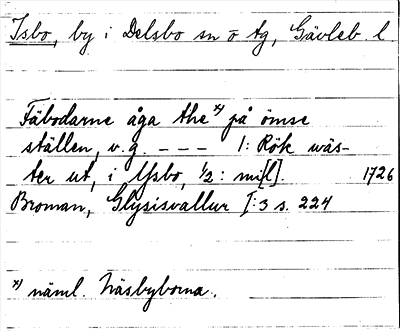 Isbo, by i Delsbo sn o tg, Gävleb. l.
Fäbodarne åga the x) på ömse
ställen, v.g. --- 1: Rök wäs-
ter ut, i Ysbo, 1/2: mi[l]. 1726
Broman, Glysisvallur I:3 s. 224
x) näml. Näsbyborna.